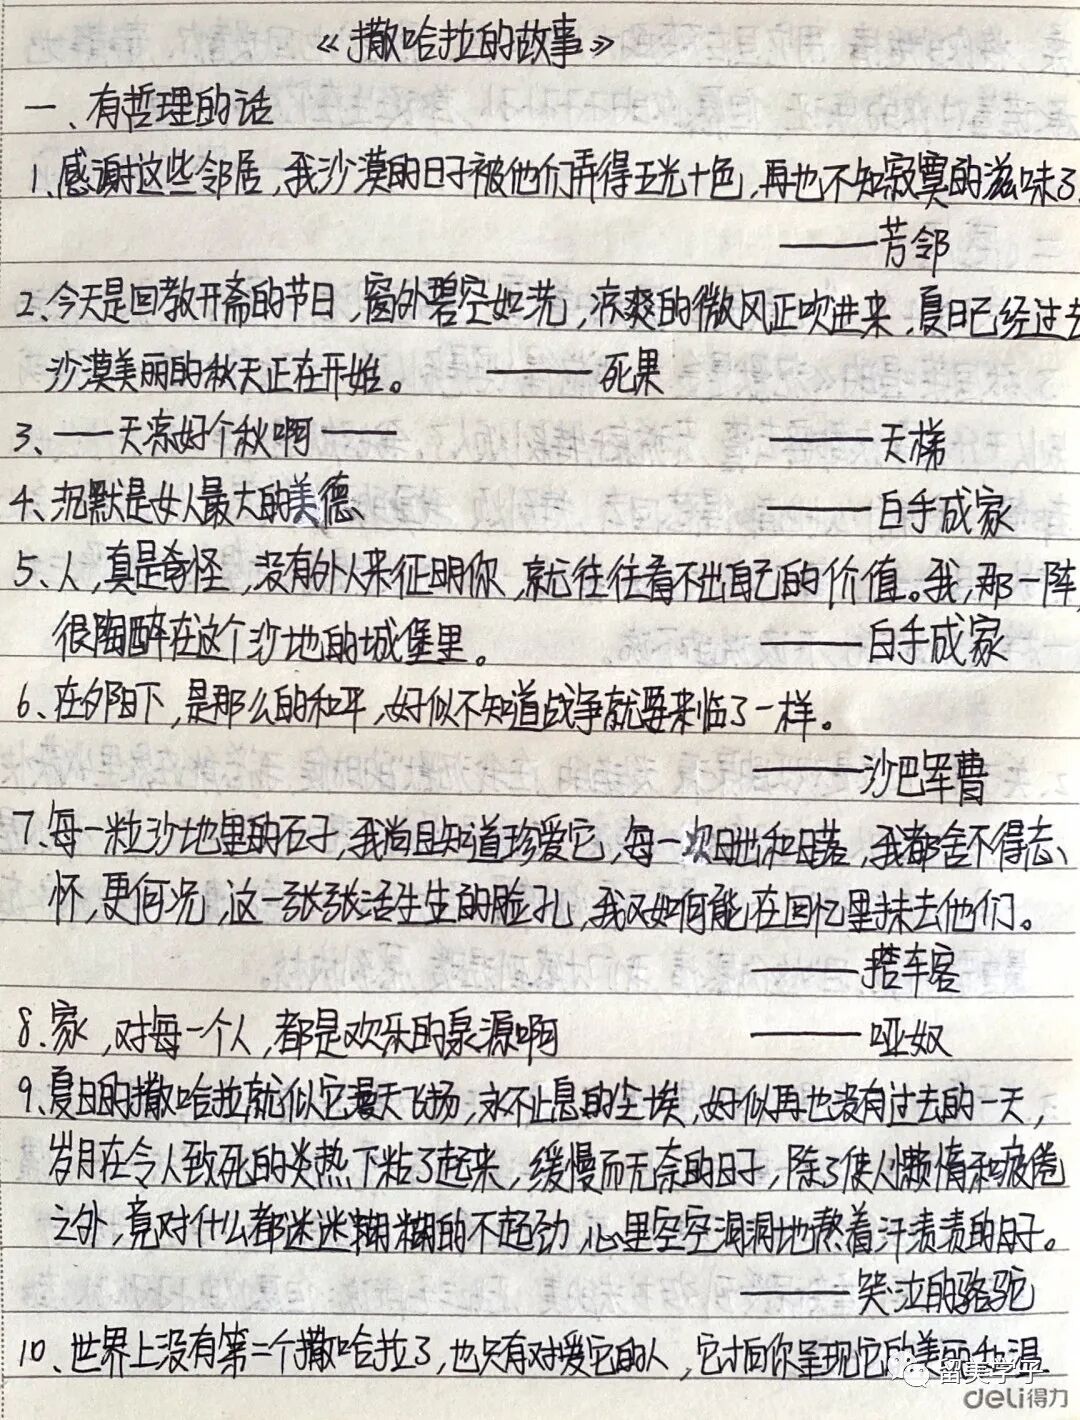 《撒哈拉的故事》
一、有哲理的话
1、感谢这些邻居，我沙漠的日子被他们弄得五光十色，再也不知寂寞的滋味了
——芳邻
2、今天是回教开斋的节日，窗外碧空如洗，凉爽的微风正吹进来，夏日已经过去
沙漠美丽的秋天正在开始。 ——死果
3、——天凉好个秋啊—— ——天梯
4、沉默是女人最大的美德、 ——白手成家
5、人，真是奇怪，没有外人来征明你，就往往看不出自己的价值。我，那一阵，
很陶醉在这个沙地的城堡里。 ——白手成家
6、在夕阳下，是那么的和平，好似不知道战争就要来临了一样。
——沙巴军曹
7、每一粒沙地里的石子，我尚且知道珍爱它，每一次日出和日落，我都舍不得忘
怀，更何况，这一张张活生生的脸孔，我又如何能在回忆里抹去他们。
——搭车客
8、家，对每一个人，都是欢乐的泉源啊 ——哑奴
9、夏日的撒哈拉就似它漫天飞扬，永不止息的尘埃，好似再也没有过去的一天，
岁月在令人致死的炎热下粘了起来，缓慢而无奈的日子，除了使人懒惰和疲倦
之外，竟对什么都迷迷糊糊的不起劲，心里空空洞洞地熬着汗渍渍的日子。
——哭泣的骆驼
10、世界上没有第二个撒哈拉了，也只有对爱它的人，它才向你呈现它的美丽和温
留美学子
deli得力